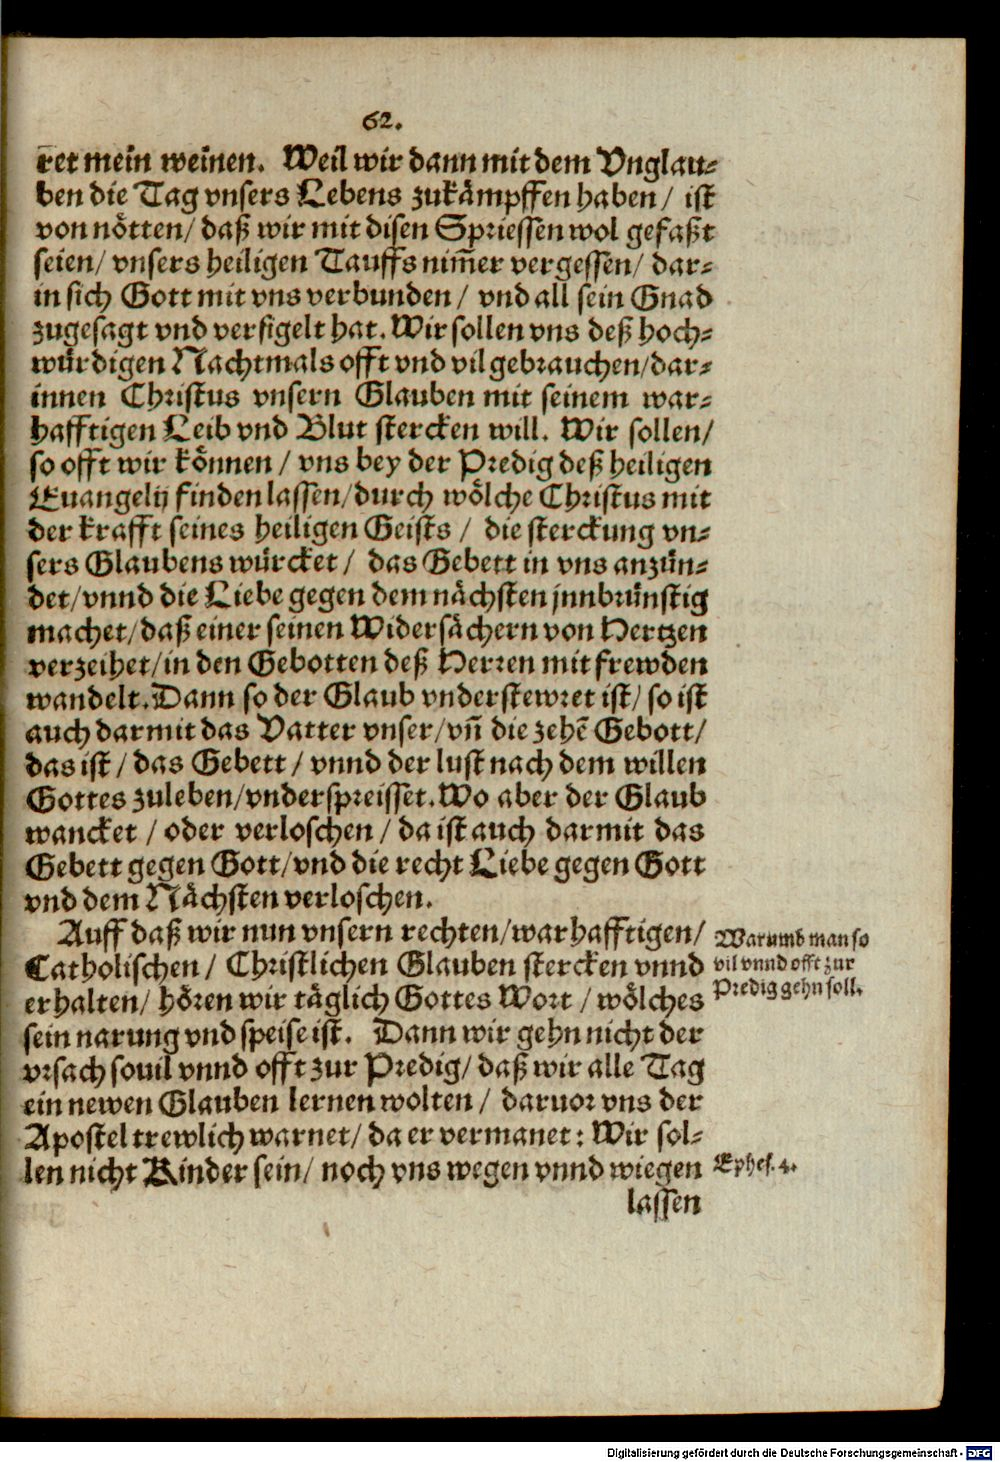 62.
ret mein weinen. Weil wir dann mit dem Vnglau-
ben die Tag vnsers Lebens zukämpffen haben / ist
von nötten / daß wir mit disen Spriessen wol gefaßt
seien / vnsers heiligen Tauffs nim̄er vergessen / dar-
in sich Gott mit vns verbunden / vnd all sein Gnad
zugesagt vnd versigelt hat. Wir sollen vns deß hoch-
würdigen Nachtmals offt vnd vil gebrauchen / dar-
innen Christus vnsern Glauben mit seinem war-
hafftigen Leib vnd Blut stercken will. Wir sollen /
so offt wir können / vns bey der Predig deß heiligen
Euangelij finden lassen / durch wölche Christus mit
der krafft seines heiligen Geists / die sterckung vn-
sers Glaubens würcket / das Gebett in vns anzün-
det / vnnd die Liebe gegen dem nächsten jnnbrünstig
machet / daß einer seinen Widersächern von Hertzen
verzeihet / in den Gebotten deß Herren mit frewden
wandelt. Dann so der Glaub vnderstewret ist / so ist
auch darmit das Vatter vnser / vn̄ die zehē Gebott /
das ist / das Gebett / vnnd der lust nach dem willen
Gottes zuleben / vnderspreisset. Wo aber der Glaub
wancket / oder verloschen / da ist auch darmit das
Gebett gegen Gott / vnd die recht Liebe gegen Gott
vnd dem Nächsten verloschen.
Auff daß wir nun vnsern rechten / warhafftigen /
Catholischen / Christlichen Glauben stercken vnnd
erhalten / hören wir täglich Gottes Wort / wölches
sein narung vnd speise ist. Dann wir gehn nicht der
vrsach souil vnnd offt zur Predig / daß wir alle Tag
ein newen Glauben lernen wolten / daruor vns der
Apostel trewlich warnet / da er vermanet: Wir sol-
len nicht Kinder sein / noch vns wegen vnnd wiegen
lassen
Warumb man so
vil vnnd offt zur
Predig gehn soll.
Ephes. 4.
Digitalisierung gefördert durch die Deutsche Forschungsgemeinschaft - DFG